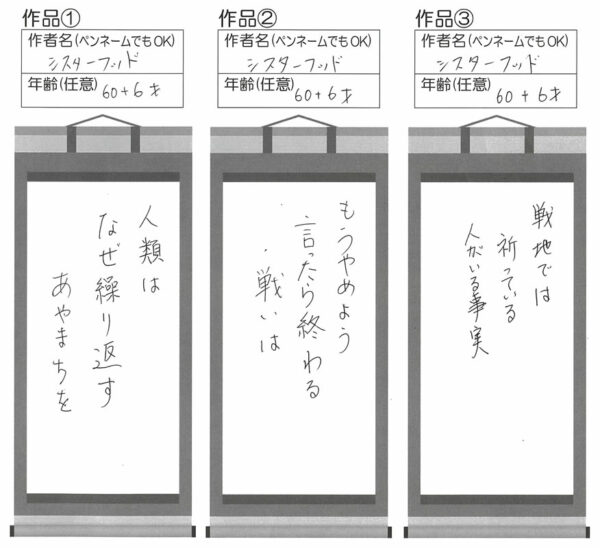 作品①
作者名(ペンネームでもOK)
シスターフッド
年齢(任意) 60+6才
人類は
なぜ繰り返す
あやまちを
作品②
作者名(ペンネームでもOK)
シスターフッド
年齢(任意) 60+6才
もうやめよう
言ったら終わる
・戦いは
作品③
作者名(ペンネームでもOK)
シスターフッド
年齢(任意) 60+6才
戦地では
祈っている
人がいる事実